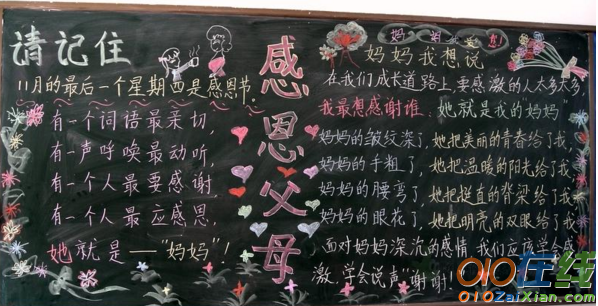 请记住
11月的最后一个星期四是感恩节。
有一个词语最亲切,
有一声呼唤最动听,
有一个人最要感谢,
有一个人最应感恩,
她就是——"妈妈"!
感恩父母
妈妈我想说
在我们成长道路上,要感激的人太多太多,
我最想感谢谁:她就是我的妈妈"
妈妈的皱纹深了,她把美丽的青春给了我,
妈妈的手粗了,她把温暖的阳光给了我,
妈妈的腰弯了,她把挺直的脊梁给了我,
妈妈的眼花了,她把明亮的双眼给了我,
面对妈妈深沉的感情,我们应该学会感
激,学会说声"谢谢!
010在线
010ZaiXian.com